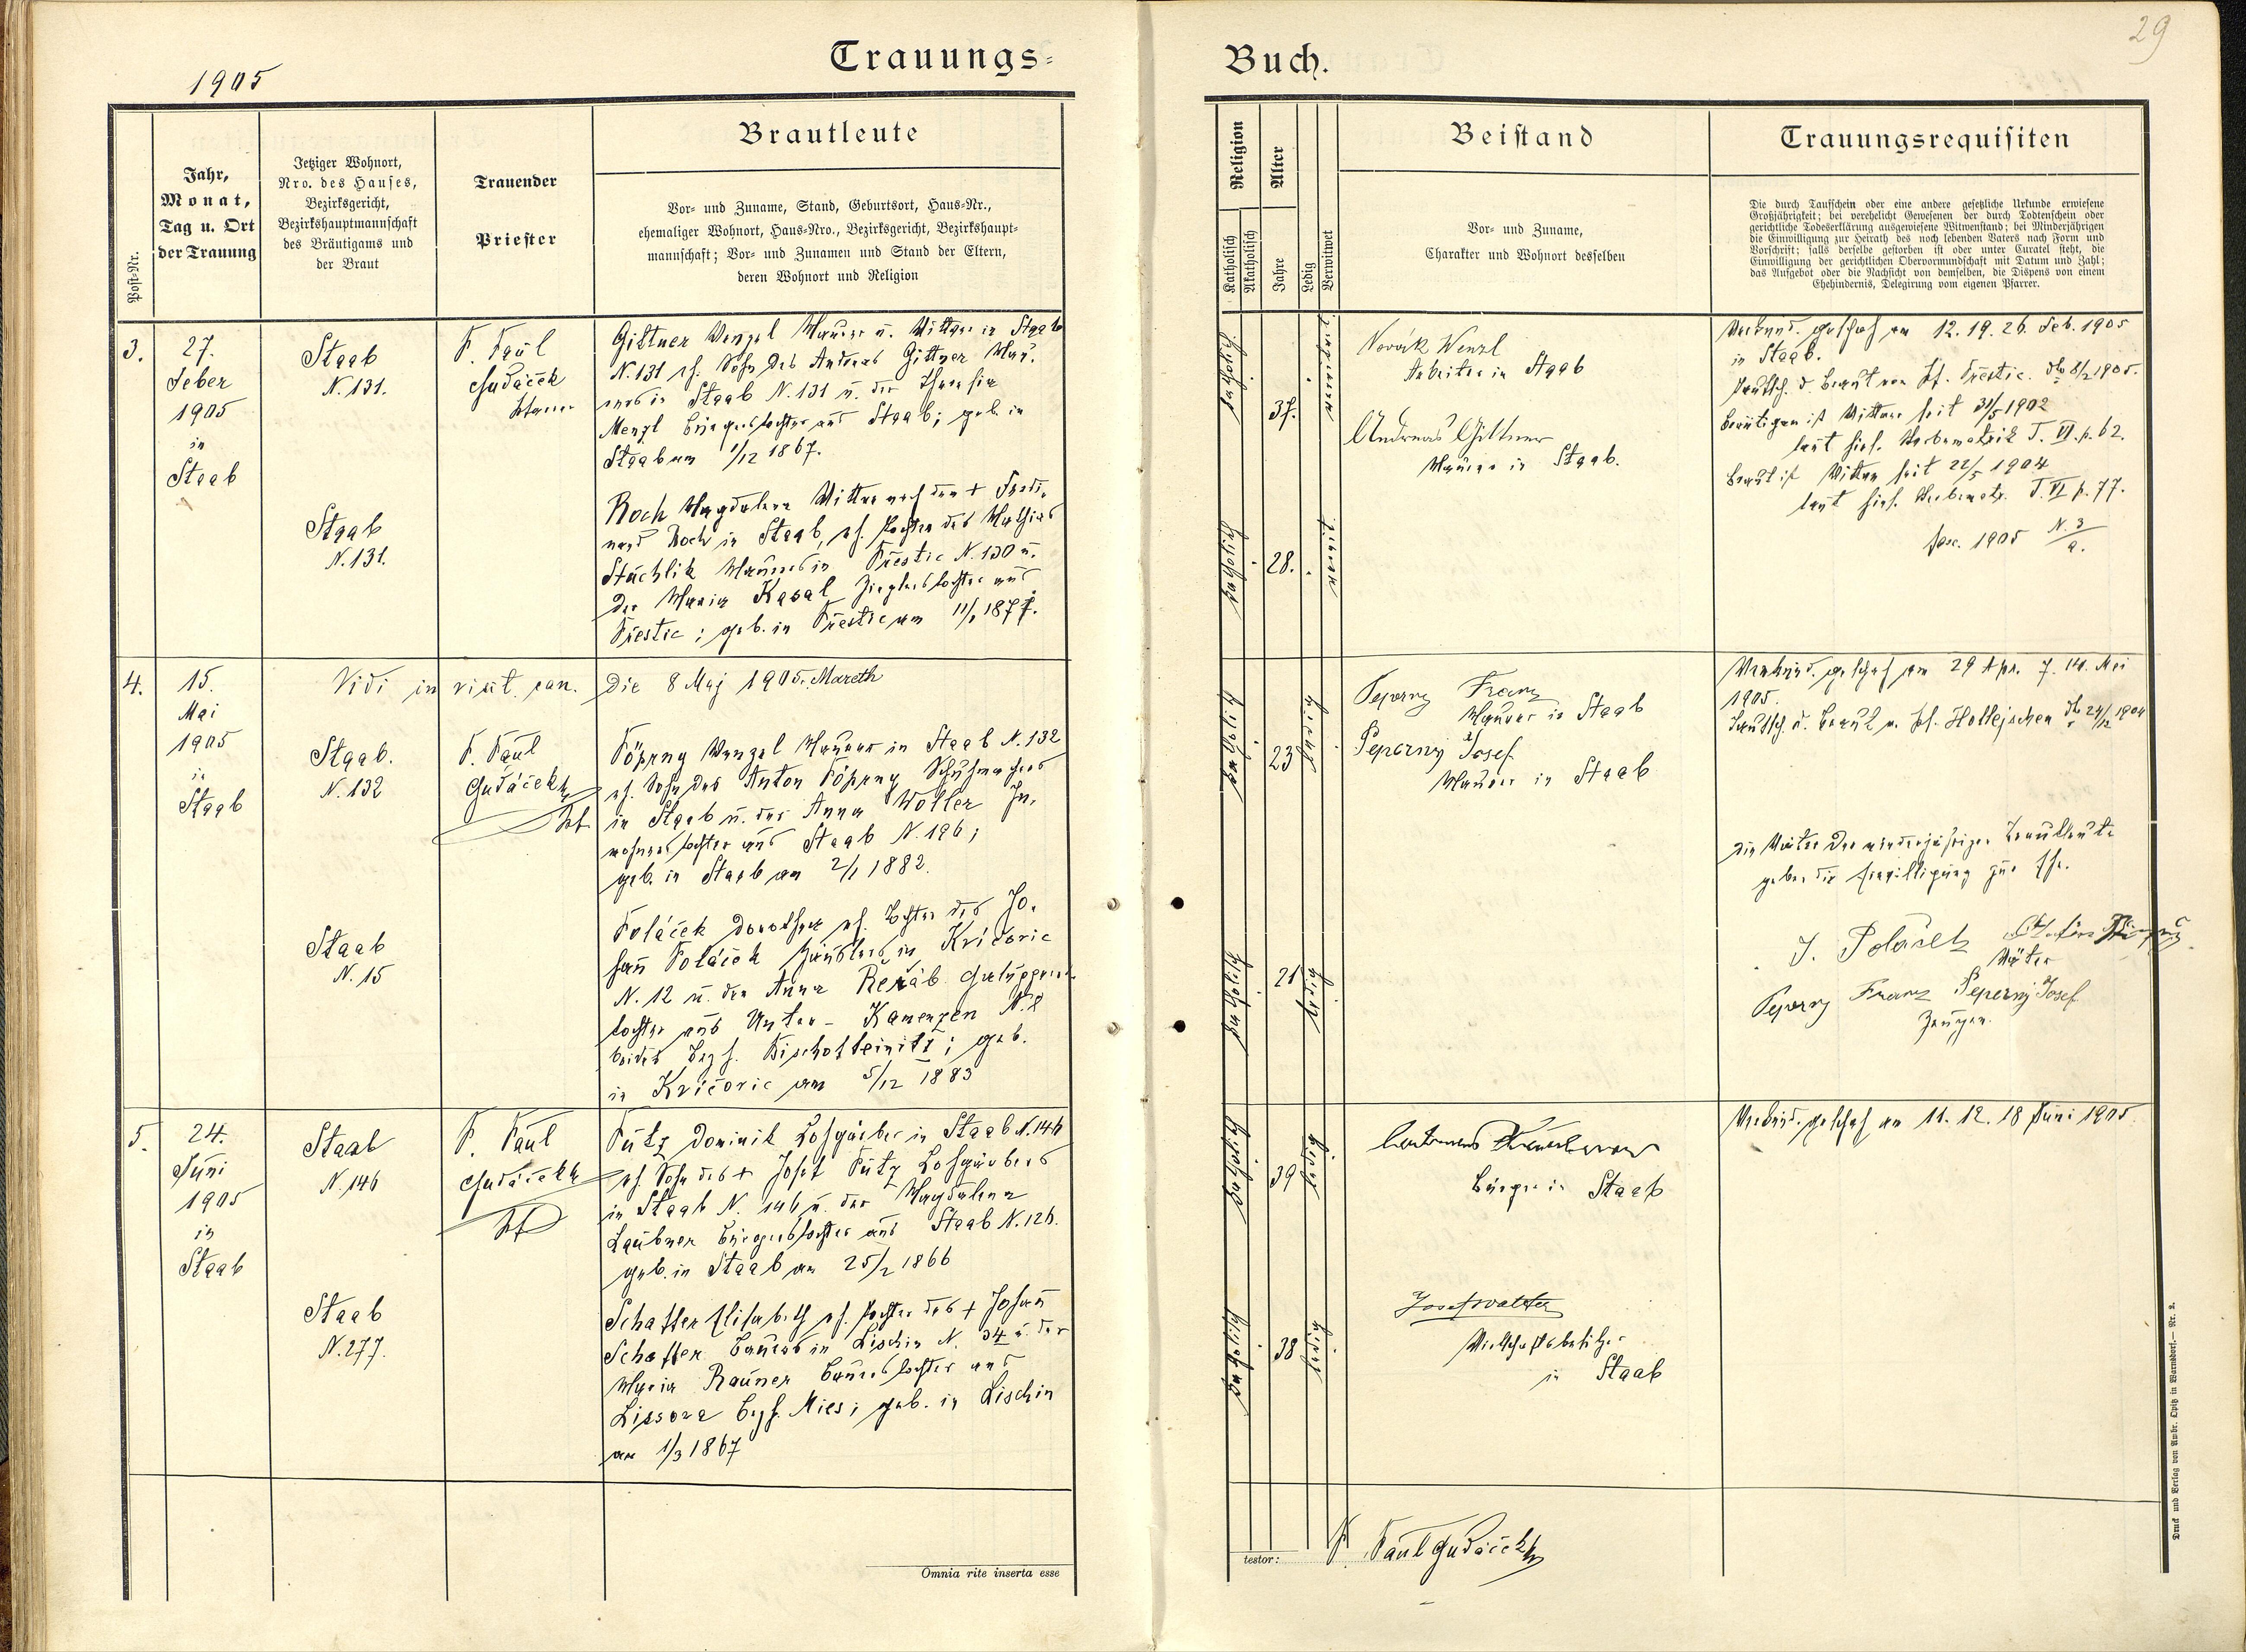 1905
Trauungs-
Post-Nr.
Jahr,
Monat,
Tag u. Ort
der Trauung
Jetziger Wohnort,
Nro. des Hauses,
Bezirksgericht,
Bezirkshauptmannschaft
des Bräutigams und
der Braut
Trauender
Priester
Brautleute
Vor- und Zuname, Stand, Geburtsort, Haus-Nr.,
ehemaliger Wohnort, Haus-Nro., Bezirksgericht, Bezirkshaupt-
mannschaft; Vor- und Zunamen und Stand der Eltern,
deren Wohnort und Religion
3.
27.
Feber
1905
in
Staab
Staab
N. 131.
Staab
N. 131.
P. Paul
Hudáček
Gittner Wenzel Maurer u. Wittwer in Staab
N. 131 eh. Sohn des Andreas Gittner Mau-
rers in Staab N. 131 u. der Theresia
Menzl Bürgerstochter aus Staab; geb. in
Staab am 1/12 1867.
Koch Magdalena Wittwe nach dem + Ferdi-
nand Koch in Staab, eh. Tochter des Mathias
Stáchlik Maurers in Přestic N. 130 u.
der Maria Kasal Zieglerstochter aus
Přestic; geb. in Přestic am
4.
15.
Mai
1905
in
Staab
Vidi in visit. can. die 8 Maj 1905. Mareth
Staab.
N. 132
Staab
N. 15
P. Paul
Hudáček
Pöperny Wenzel Maurer in Staab N. 132
eh. Sohn des Anton Pöperny Schuhmachers
in Staab u. der Anna Woller In-
wohnerstochter aus Staab N. 196;
geb. in Staab am 2/1 1882.
Poláček Dorothea eh. Tochter des Jo-
hann Poláček Häuslers in Kvíčovic
N. 12 u. der Anna Režáb
tochter aus Unter-Kamenzen N. 2
beides Bezh. Bischofteinitz; geb.
in Kvíčovic am 5/12 1883
5.
24.
Juni
1905
in
Staab
Staab
N. 146
Staab
N. 277.
P. Paul
Hudáček
Pütz Dominik Lohgärber in Staab N. 146
eh. Sohn des + Josef Pütz Lohgärbers
in Staab N. 146 u. der Magdalena
Laubner Bürgerstochter aus Staab N. 126.
geb. in Staab am 25/2 1866
Schaffer Elisabeth eh. Tochter des + Johann
Schaffer Bauers in Lischin N. 34 u. der
Maria Rauner Bauerstochter aus
Lissova Bezh. Mies; geb. in Lischin
am 1/3 1867
Omnia rite inserta esse
29
Buch.
Religion
Katholisch
Akatholisch
Alter
Jahre
Ledig
Verwitwet
Beistand
Vor- und Zuname,
Charakter und Wohnort desselben
Trauungsrequisiten
Die durch Taufschein oder eine andere gesetzliche Urkunde erwiesene
Großjährigkeit; bei verehelicht Gewesenen der durch Todtenschein oder
gerichtliche Todeserklärung ausgewiesene Witwenstand; bei Minderjährigen
die Einwilligung zur Heirath des noch lebenden Vaters nach Form und
Vorschrift; falls derselbe gestorben ist oder unter Curatel steht, die
Einwilligung der gerichtlichen Obervormundschaft mit Datum und Zahl;
das Aufgebot oder die Nachsicht von demselben, die Dispens von einem
Ehehindernis, Delegirung vom eigenen Pfarrer.
katholisch
37.
verwitwet
katholisch
28.
verwitwet
Novák Wenzl
Arbeiter in Staab
Andreas Gittner
Maurer in Staab.
Verkünd. geschah am 12. 19. 26. Feb. 1905
in Staab.
Taufsch. d. Braut vom Pf. Přestic. dto 8/2 1905.
Bräutigam ist Wittwer seit 31/5 1902
laut hies. Sterbematrik T. VI. p. 62.
Braut ist Wittwe seit 22/5 1904
laut hies. Sterbematr. T. VI p. 77.
fasc. 1905 N. 3/a.
katholisch
23
ledig
katholisch
21
ledig
Peperny Franz
Maurer in Staab
Peperny Josef
Maurer in Staab
Verkünd. geschah am 29 Apr. 7. 14. Mai
1905.
Taufsch. d. Braut v. Pf. Holleischen dto 24/12 1904
Die Väter der minderjährigen Brautleute
geben die Einwilligung zur Ehe.
J. Poláček
Väter
Peperny Franz Peperny Josef
Zeugen.
katholisch
39
ledig
katholisch
38
ledig
Bürger in Staab
Josef Walter
Wirthschaftsbesitzer
in Staab
Verkünd. geschah am 11. 12. 18 Juni 1905.
testor:
P. Paul Hudáček
Druck und Verlag von Ambr. Opitz in Warnsdorf. — Nr. 2.